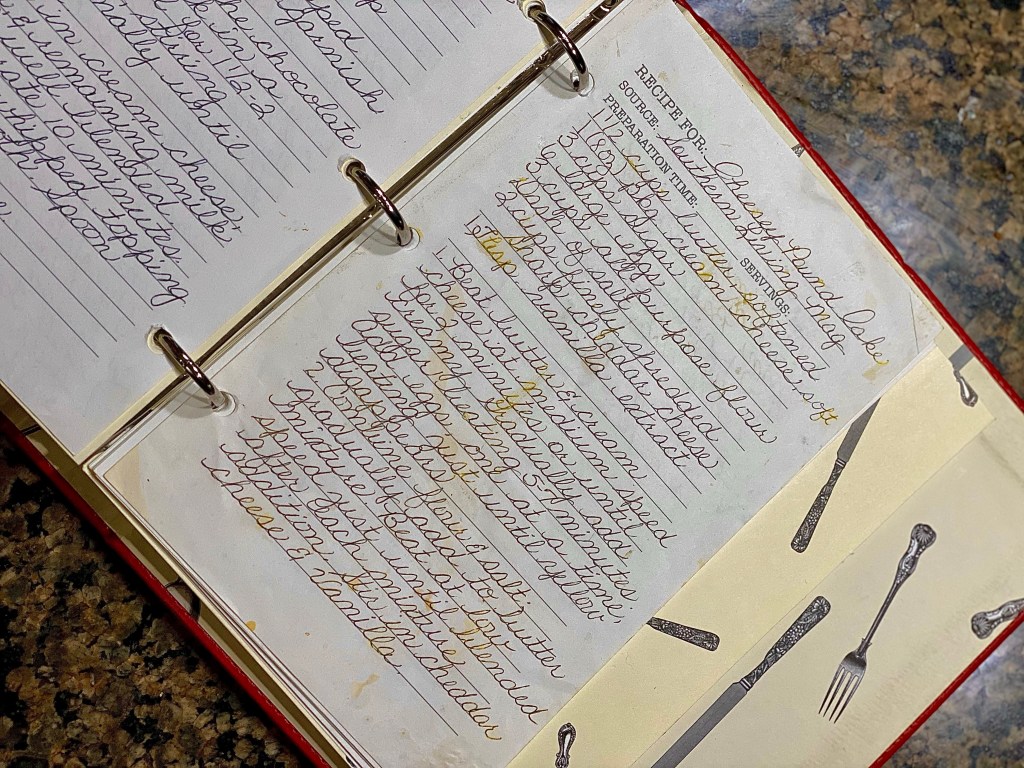 garnish
the chocolate
in a
1 1/2-2
stirring
until
in cream cheese,
remaining milk
until blended
10 minutes.
whipped topping
spoon
RECIPE FOR: Cheesy Pound Cake
SOURCE: Southern Living Mag
PREPARATION TIME: SERVINGS:
1 1/2 cups butter, softened
1 8oz pkg cream cheese, soft
3 cups sugar
6 large eggs
3 cups all purpose flour
dash of salt
2 cups finely shredded
sharp cheddar cheese
1 Tbsp vanilla extract
1. Beat butter & cream
cheese at medium speed
for 2 minutes or until
creamy. Gradually add
sugar, beating 5-7 minutes.
Add eggs, one at a time,
beating just until yellow
disappears.
2. Combine flour & salt;
gradually add to butter
mixture. Beat at low
speed just until blended
after each mixture
addition. Stir in cheddar
cheese & vanilla.